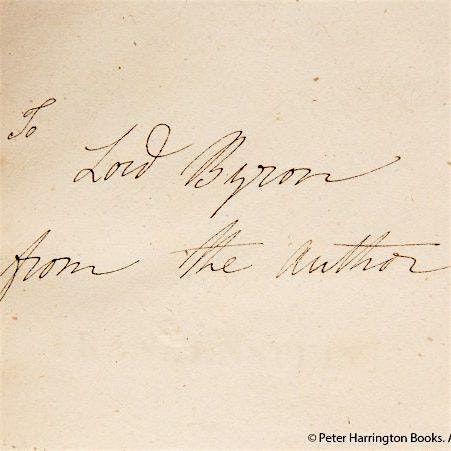 To
Lord Byron
from the author
© Peter Harrington Books. A